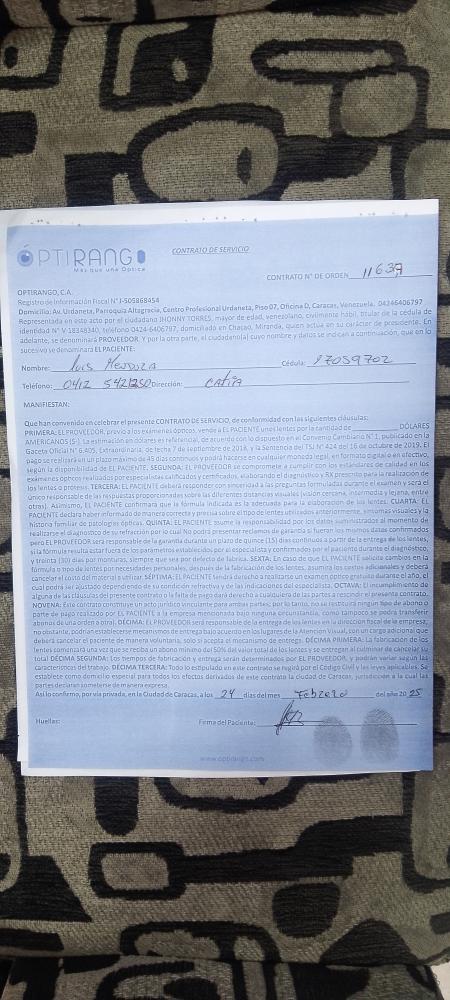 ÓPTIRANGO
Más que una Óptica
CONTRATO DE SERVICIO
CONTRATO N° DE ORDEN
OPTIRANGO, C.A.
Registro de Información Fiscal N° J-505868454
Domicilio: Av. Urdaneta, Parroquia Altagracia, Centro Profesional Urdaneta, Piso 07, Oficina D, Caracas, Venezuela. 04246406797
Representada en este acto por el ciudadano JHONNY TORRES, mayor de edad, venezolano, civilmente hábil, titular de la cédula de
identidad N° V-18348340, teléfono 0424-6406797, domiciliado en Chacao, Miranda, quien actúa en su carácter de presidente. En
adelante, se denominará PROVEEDOR. Y por la otra parte, el ciudadano(a) cuyo nombre y datos se indican a continuación, que en lo
sucesivo se denominará EL PACIENTE:
Nombre: Luis Mendoza Cédula: 17059702
Teléfono: 0412 5421250 Dirección: Catia
MANIFIESTAN:
Que han convenido en celebrar el presente CONTRATO DE SERVICIO, de conformidad con las siguientes cláusulas:
PRIMERA: EL PROVEEDOR, previo a los exámenes ópticos, vende a EL PACIENTE unos lentes por la cantidad de DÓLARES
AMERICANOS ($-). La estimación en dólares es referencial, de acuerdo con lo dispuesto en el Convenio Cambiario N° 1, publicado en la
Gaceta Oficial N° 6.405, Extraordinaria, de fecha 7 de septiembre de 2018, y la Sentencia del TSJ N° 424 del 16 de octubre de 2019. El
pago se realizará en un plazo máximo de 45 días continuos y podrá hacerse en cualquier moneda legal, en formato digital o en efectivo,
según la disponibilidad de EL PACIENTE. SEGUNDA: EL PROVEEDOR se compromete a cumplir con los estándares de calidad en los
exámenes ópticos realizados por especialistas calificados y certificados, elaborando el diagnóstico y RX prescrito para la realización de
los lentes o prótesis. TERCERA: EL PACIENTE deberá responder con sinceridad a las preguntas formuladas durante el examen y será el
único responsable de las respuestas proporcionadas sobre las diferentes distancias visuales (visión cercana, intermedia y lejana, entre
otras). Asimismo, EL PACIENTE confirmará que la fórmula indicada es la adecuada para la elaboración de los lentes. CUARTA: EL
PACIENTE declara haber informado de manera correcta y precisa sobre el tipo de lentes utilizados anteriormente, síntomas visuales y la
historia familiar de patologías ópticas. QUINTA: EL PACIENTE asume la responsabilidad por los datos suministrados al momento de
realizarse el diagnóstico de su refracción por lo cual No podrá presentar reclamos de garantía si fueran los mismos datos confirmados
pero EL PROVEEDOR será responsable de la garantía durante un plazo de quince (15) días continuos a partir de la entrega de los lentes,
si la fórmula resulta estar fuera de los parámetros establecidos por el especialista y confirmados por el paciente durante el diagnóstico,
y treinta (30) días por monturas, siempre que sea por defecto de fábrica. SEXTA: En caso de que EL PACIENTE solicite cambios en la
fórmula o tipo de lentes por necesidades personales, después de la fabricación de los lentes, asumirá los costos adicionales y deberá
cancelar el costo del material a utilizar. SÉPTIMA: EL PACIENTE tendrá derecho a realizarse un examen óptico gratuito durante el año, el
cual podrá ser ajustado dependiendo de su condición refractiva y de las indicaciones del especialista. OCTAVA: El incumplimiento de
alguna de las cláusulas del presente contrato o la falta de pago dará derecho a cualquiera de las partes a rescindir el presente contrato.
NOVENA: Este contrato constituye un acto jurídico vinculante para ambas partes; por lo tanto, no se restituirá ningún tipo de abono o
parte de pago realizado por EL PACIENTE a la empresa mencionada bajo ninguna circunstancia, como tampoco se podrá transferir
abonos de una orden a otra). DÉCIMA: EL PROVEEDOR será responsable de la entrega de los lentes en la dirección fiscal de la empresa;
no obstante, podrían establecerse mecanismos de entrega bajo acuerdo en los lugares de la Atención Visual, con un cargo adicional que
deberá cancelar el paciente de manera voluntaria, solo si acepta el mecanismo de entrega. DÉCIMA PRIMERA: La fabricación de los
lentes comenzará una vez que se reciba un abono mínimo del 50% del valor total de los lentes y se entregan al culminar de cancelar su
total DÉCIMA SEGUNDA: Los tiempos de fabricación y entrega serán determinados por EL PROVEEDOR, y podrán variar según las
características del trabajo. DÉCIMA TERCERA: Todo lo estipulado en este contrato se regirá por el Código Civil y las leyes aplicables. Se
establece como domicilio especial para todos los efectos derivados de este contrato la ciudad de Caracas, jurisdicción a la cual las
partes declaran someterse de manera expresa.
Así lo confirmo, por vía privada, en la Ciudad de Caracas, a los 24 días del mes Febrero del año 2025
Huellas: Firma del Paciente:
www.optirango.com